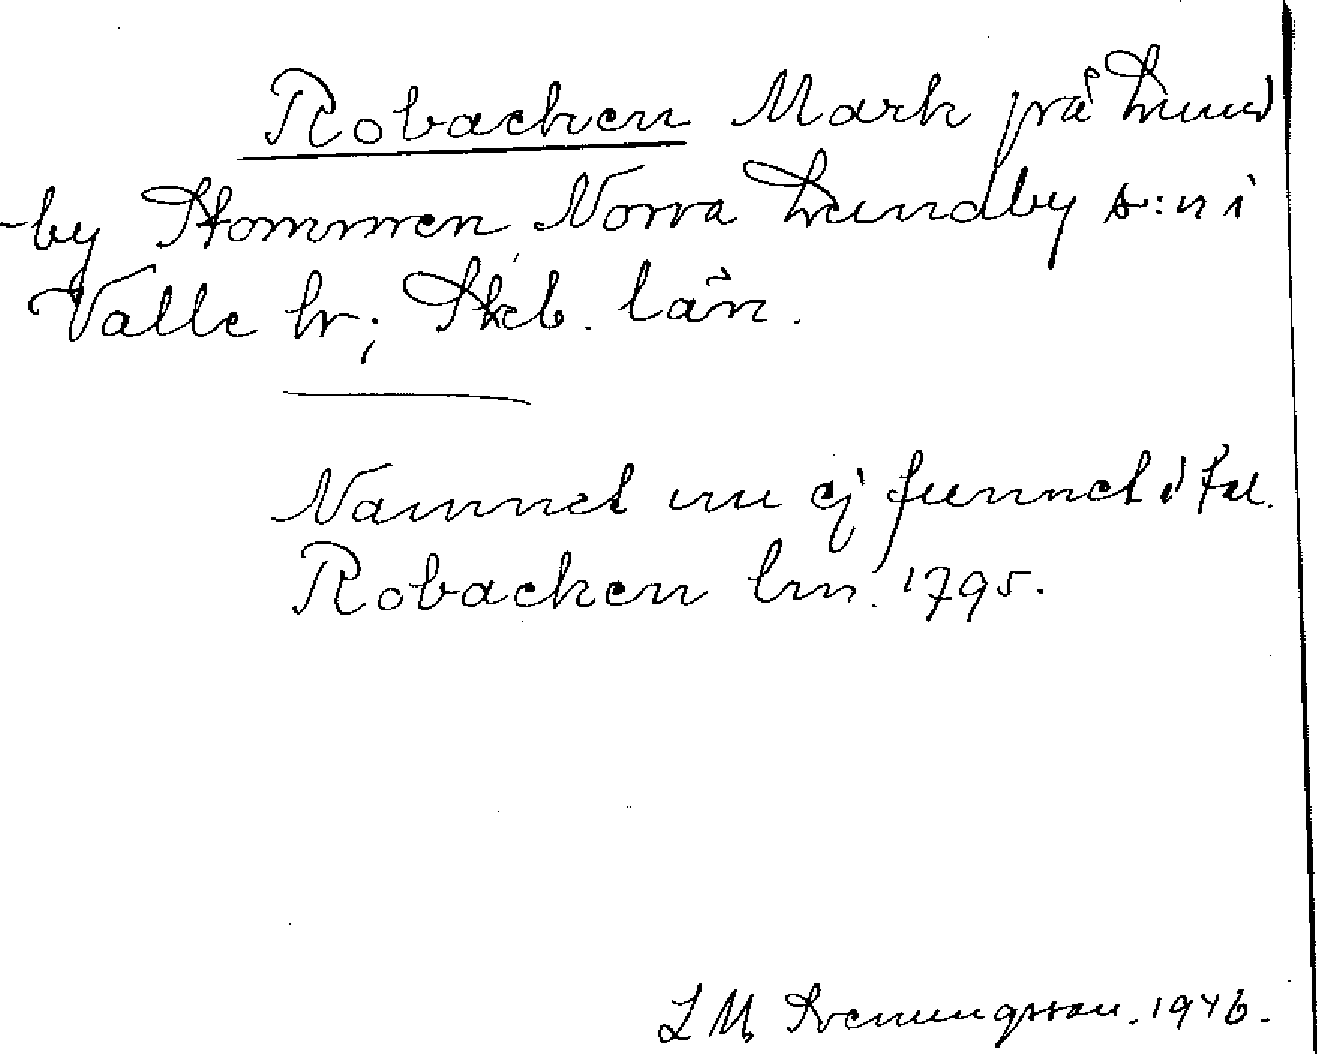 Robacken Mark på Lund
-by Stommen, Norra Lundby s:n i
Valle hr; Skb. län.
Namnet nu ej funnet i tal.
Robacken lm. 1795.
L M Svenungsson. 1946.